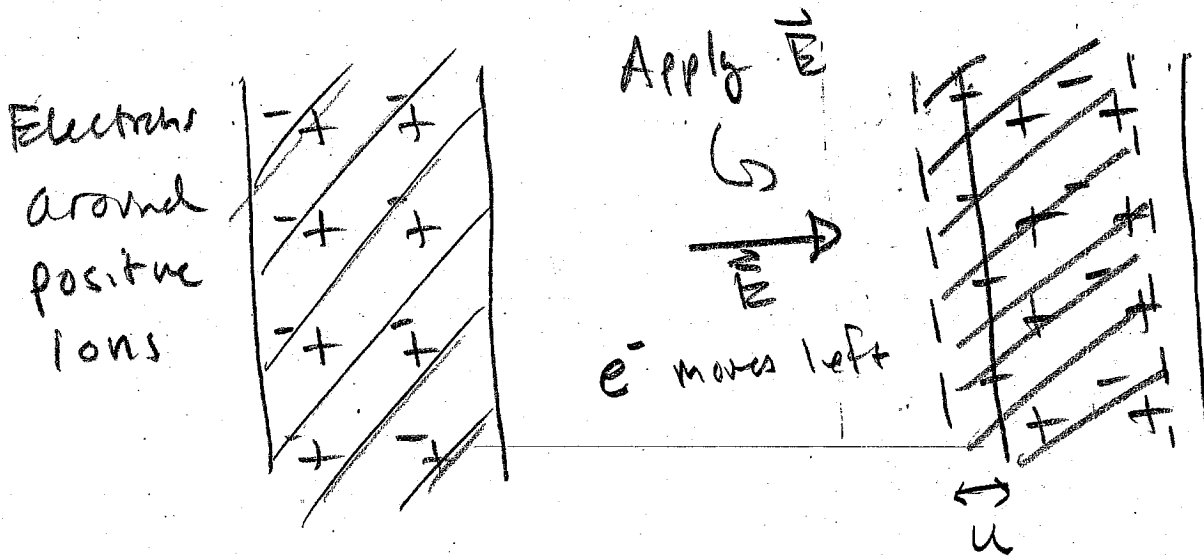 Electrons
around
positive
Ions
- + - +
- + - +
- + - +
- + - +
Apply E⃗
E⃗
e⁻ moves left
- + - +
- + - +
- + - +
- + - +
u